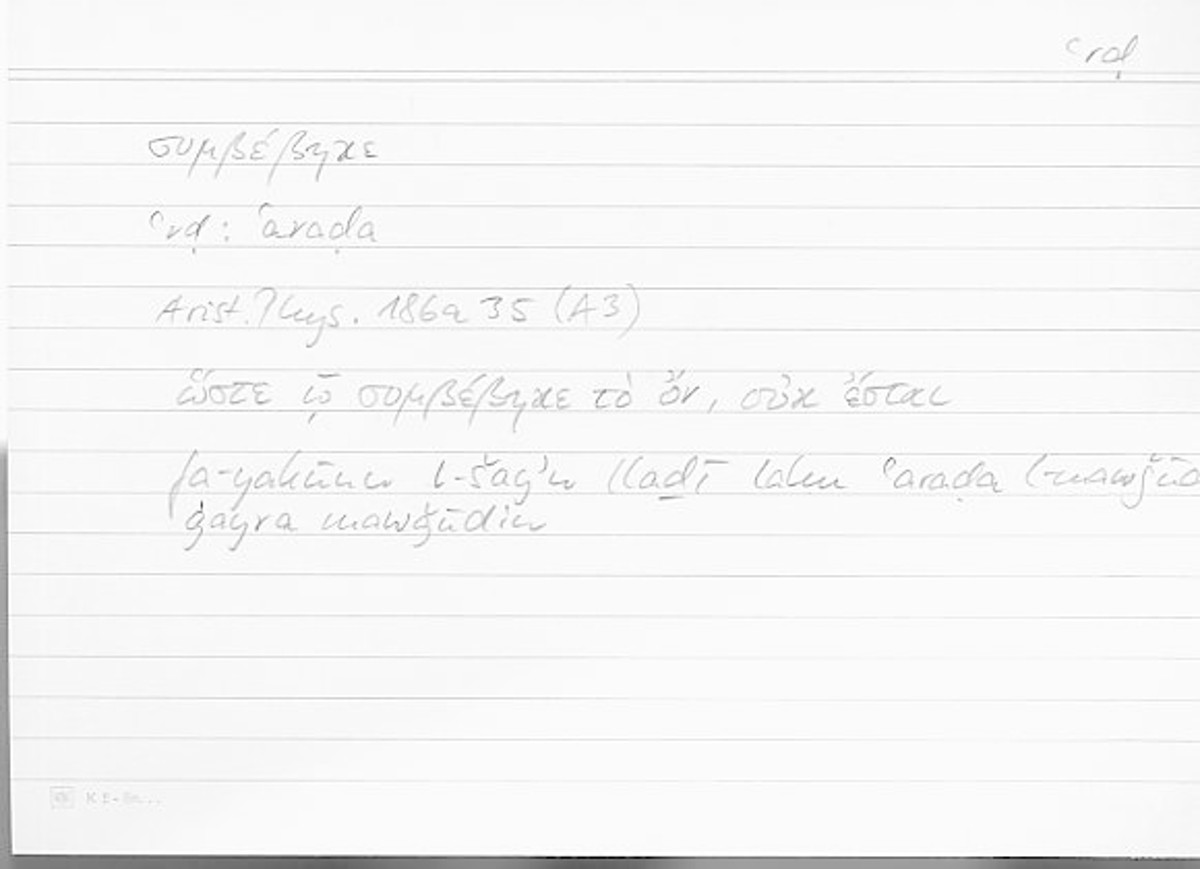 ʿrḍ
συμβέβηκε
ʿrḍ: ʿaraḍa
Arist. Phys. 186a 35 (A3)
ὥστε ᾧ συμβέβηκε τὸ ὄν, οὐκ ἔσται
fa-yakūnu l-šayʾu llaḏī lahu ʿaraḍa l-mawǧūd
ġayra mawǧūdin